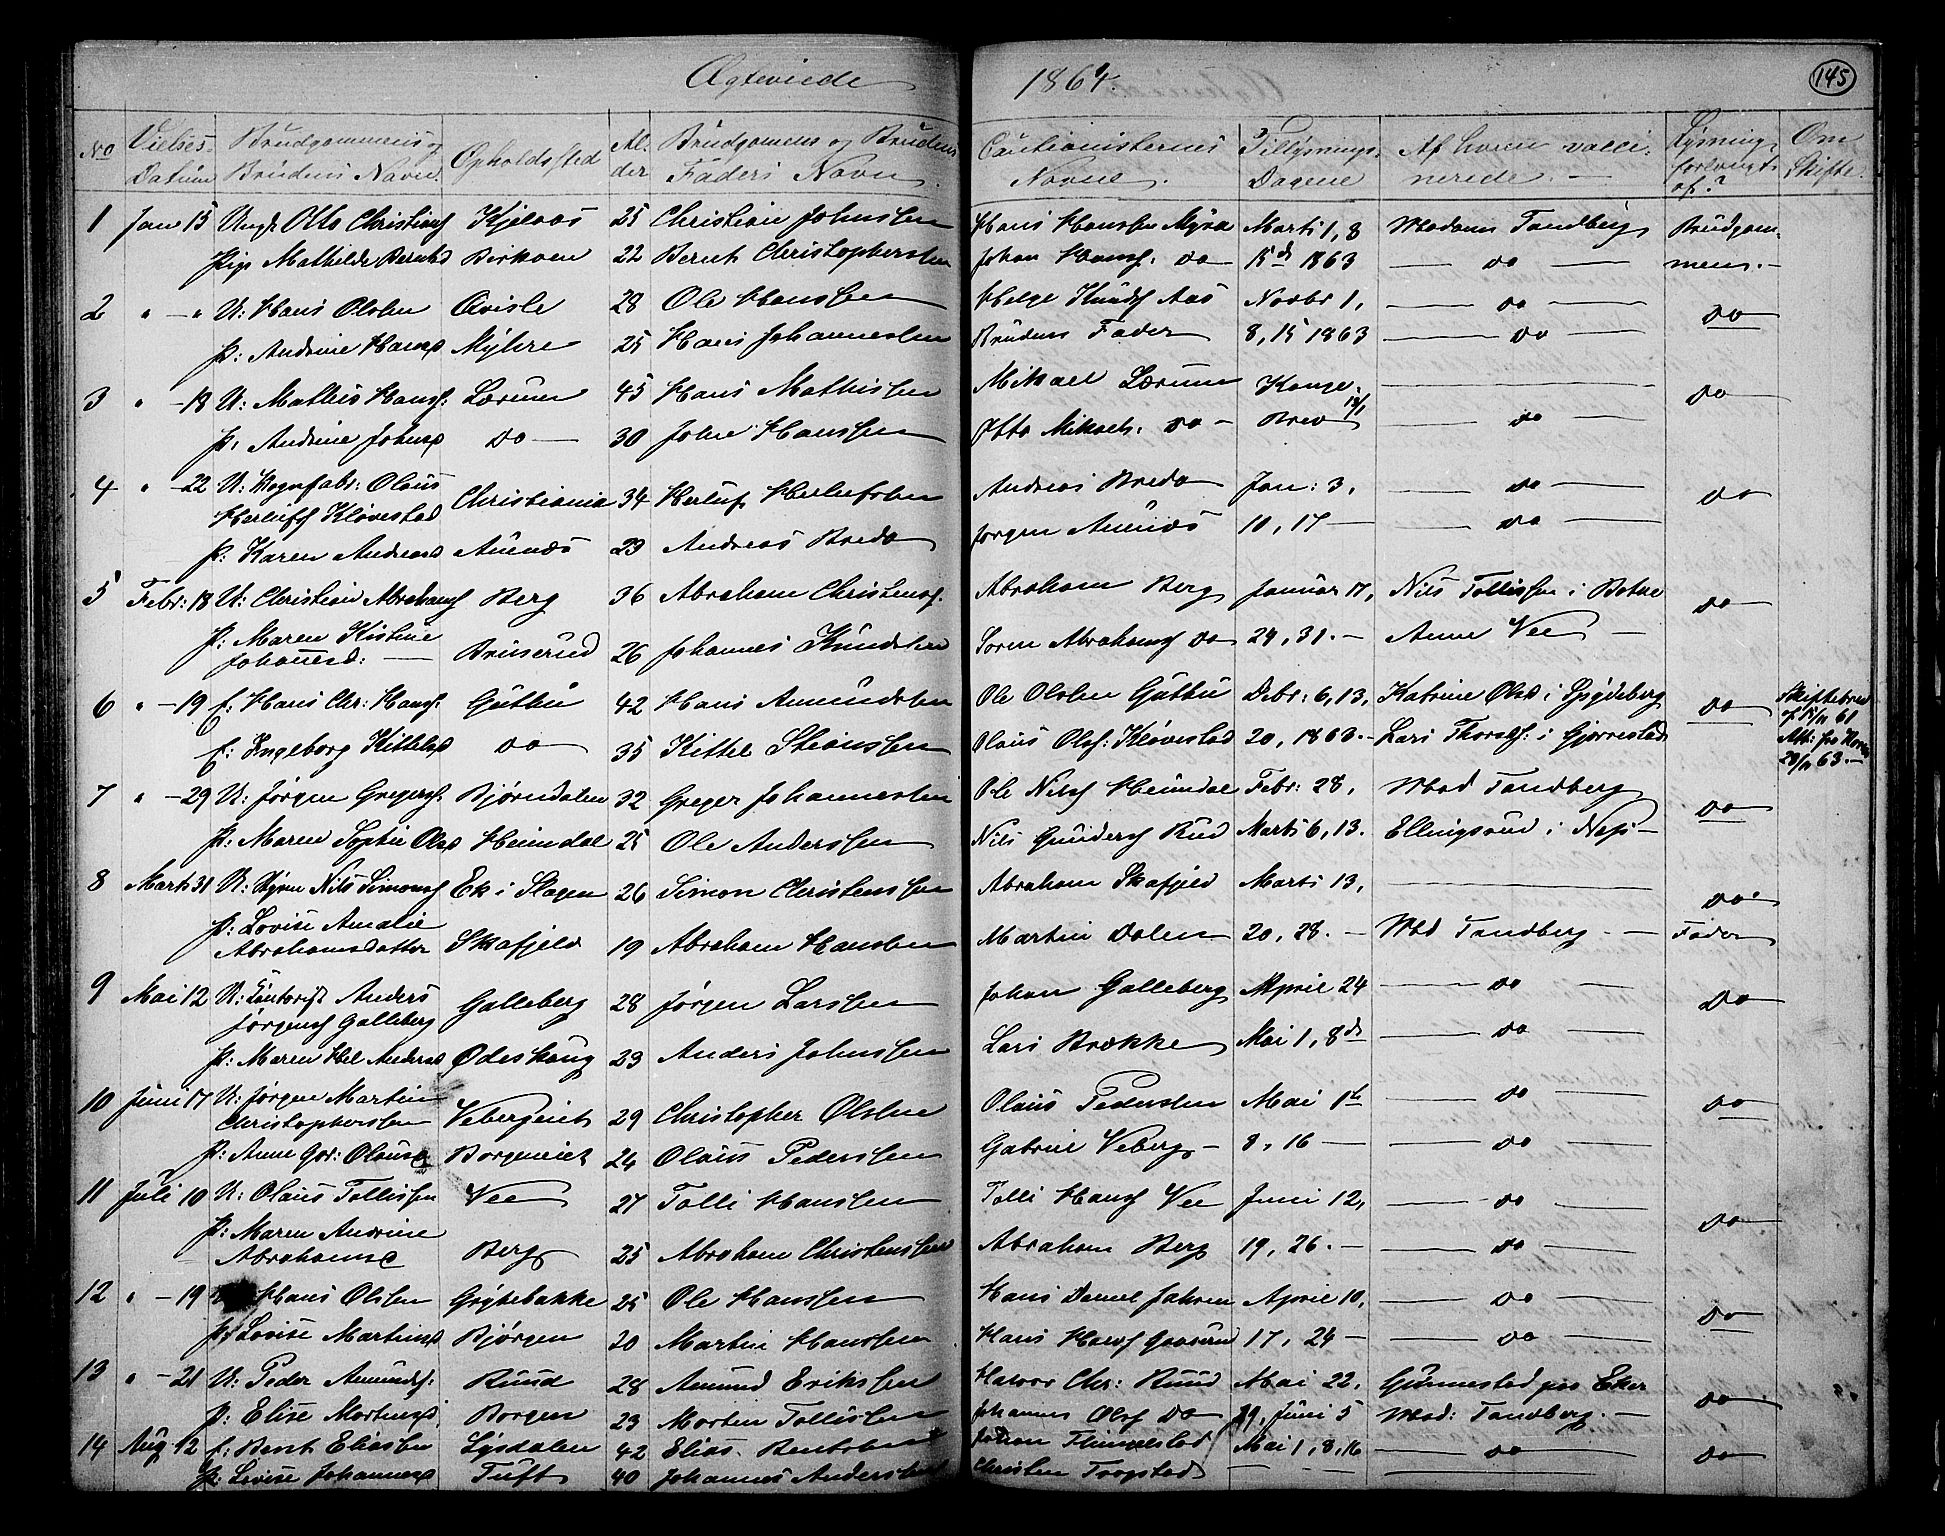 Ægteviede 1864. 145
No Vielses- Datum Brudgommens og Brudens Navn. Opholdssted Al- der Brudgomens og Brudens Faders Navn. Cautionisternes Navne. Tillysnings- Dagene Af hvem vacci- nerede. — Lysning forlangt af? Om Skifte.
1 Jan 15 Ungk Otto Christians Kjelaas 25 Christian Johnssen Hans Hanssen Myra Marts 1, 8 Madam Tandberg Brudgom-
Pige Mathilde Berntsd Birkoen 22 Bernt Christophersen Johan Hanss. do 15d 1863 — do — mem. —
2 " — " U: Hans Olsen Qvisle 28 Ole Hanssen Helge Knuds Aas Novbr 1, — do — do
P: Andrine Hansd Myhre 25 Hans Johannesen Brudens Fader 8, 15 1863 — do —
3 " — 18 U: Mathis Hanss: Lærum 45 Hans Mathissen Mikael Lærum Konge- — do
P: Andrine Johnsd do — 30 John Hanssen Otto Mikaels. do — Brev 13/1 — do —
4 " — 22 U: Vognfabr: Olaus Herlufs Kløvestad Christiania 34 Herluf Herlufsen Andreas Breda Jan: 3, — do — do
P: Karen Andreasd Auenæs 23 Andreas Breda Jørgen Auenæs 10, 17 — — do —
5 Febr: 18 U: Christian Abrahams Berg 36 Abraham Christens. Abraham Berg Januar 17, Nils Tollissen i Botne do
P: Maren Kistine Johannesd: — Bruserud 26 Johannes Knudsen Soren Abrahams do 24, 31. — Anne Vee —
6 " — 19 E: Hans Chr: Hans: Guttu 42 Hans Amundsen Ole Olsen Guttu Debr: 6, 13, Katrine Olsd i Spydeberg do Skiftebrev
af 15/11 61
E: Ingeborg Kittelsd do 35 Kittel Steinssen Olaus Ols: Kløvestad 20, 1863. — Lars Thorss: i Gjerrestad Att: fra
28/11 63. —
7 " — 29 U: Jørgen Gregers. Bjørndalen 32 Greger Johannesen Ole Nilss Heimdal Febr: 28, Mad Tandberg do
P: Maren Sophie Olsd Heimdal 25 Ole Anderssen Nils Gunders Rud Marts 6, 13. Ellingsrud i Næs —
8 Marts 31 U: Styrm Nils Simons Ek i Slagen 26 Simon Christenssen Abraham Skafjeld Marts 13, — do
P: Lovise Amalie Abrahamsdatter Skafjeld 19 Abraham Hansen Martin Dalen 20, 28. — Mad Tandberg — Fader
9 Mai 12 U: Anders Jørgens Galleberg Galleberg 28 Jørgen Larssen Johan Galleberg Aprie 24 — do — do
P: Maren Hel Andersd Ødeskoug 23 Anders Johnssen Lars Brække Mai 1, 8de — do —
10 Juni 17 U: Jørgen Martin Christophersen Vebergeiet 29 Christopher Olsen Olaus Pedersen Mai 1te — do — do
P: Anne Gur: Olausd Borgeneiet 24 Olaus Pederssen Gabriel Veberg — 8, 16 — — do —
11 Juli 10 U: Olaus Tollissen Vee 27 Tolli Hanssen Tolli Hanss Vee Juni 12, — do — do
P: Maren Andrine Abrahamsd Berg 25 Abraham Christenssen Abraham Berg 19, 26. — — do —
12 " — 19 Hans Olssen Grytebakke 25 Ole Hanssen Hans Daniel Jahren Aprie 10, — do — do
P: Lovise Martinsd Bjørgen 20 Martin Hanssen Hans Hanss Gaasrud 17, 24 — — do —
13 " — 21 U: Peder Amunds: Ruud 28 Amund Erikssen Halvor Chr: Ruud Mai 22, Gunnestad paa Eker do
P: Elise Mortensd Borgen 23 Morten Tollissen Johannes Ols do 29, Juni 5 Mad: Tandberg. —
14 Aug 12 E: Bent Eliassen Lysdalen 42 Elias Bentsen Johan Himmelstad Mai 1, 8, 16 — do — do
P: Lovise Johannesd Tuft 40 Johannes Anderssen Christen Trogstad — —